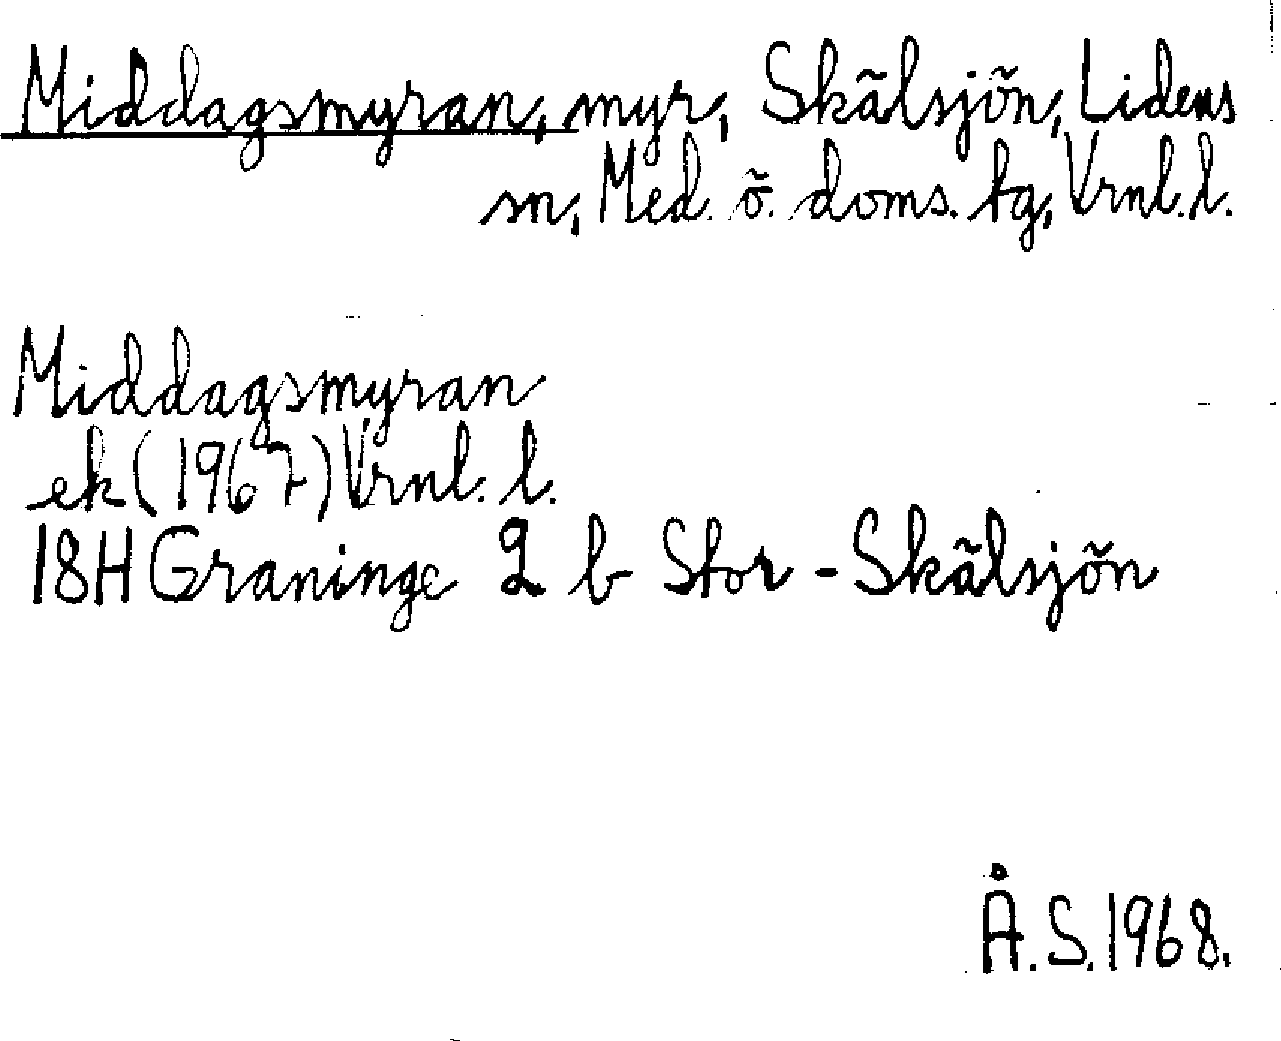 Middagsmyran, myr, Skälsjön, Lidens
sn, Med. ö. doms. tg, Vrnl. l.
Middagsmyran
ek (1967) Vrnl. l.
18H Graninge 2 b Stor-Skälsjön
Å.S. 1968.